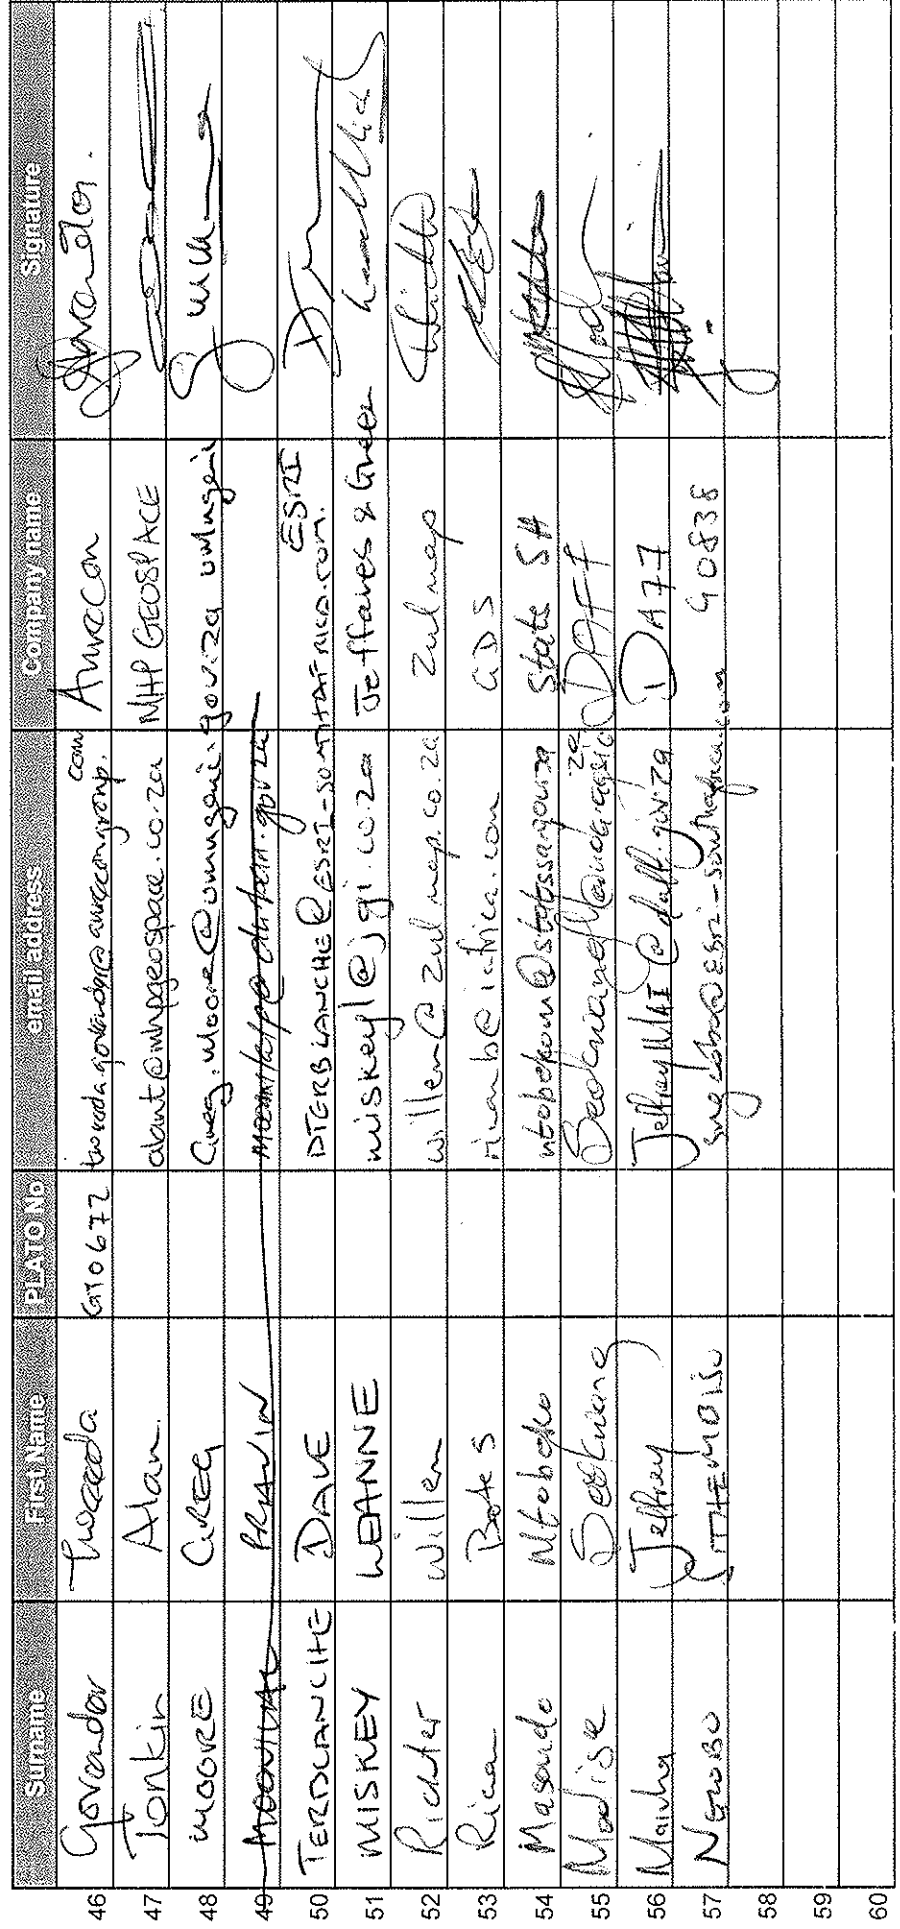 Surname First Name PLATO No email address Company name Signature
46 Govender GT0672 Aurecon
47 Tonkin Alan alant@mhpgeospace.co.za MHP GEOSPACE
48 MOORE GREG Greg.Moore@umngeni.gov.za umngeni
49 PRAVIN
50 TERBLANCHE DAVE DTERBLANCHE@ESRI-SOUTHAFRICA.COM. ESRI
51 MISKEY LEANNE miskeyl@jgi.co.za Jeffares & Green
52 Richter Willem willem@zulmap.co.za Zulmap
53 Rica Botes ricab@iafrica.com GDS
54 Masondo Ntobeko ntobekom@statssa.gov.za State SA
55 Modise Seokwang DAFF
56 Jeffrey JeffreyMAI@daff.gov.za DAFF
57 Ngcobo SITHEMBISO esri-southafrica.com 90838
58
59
60